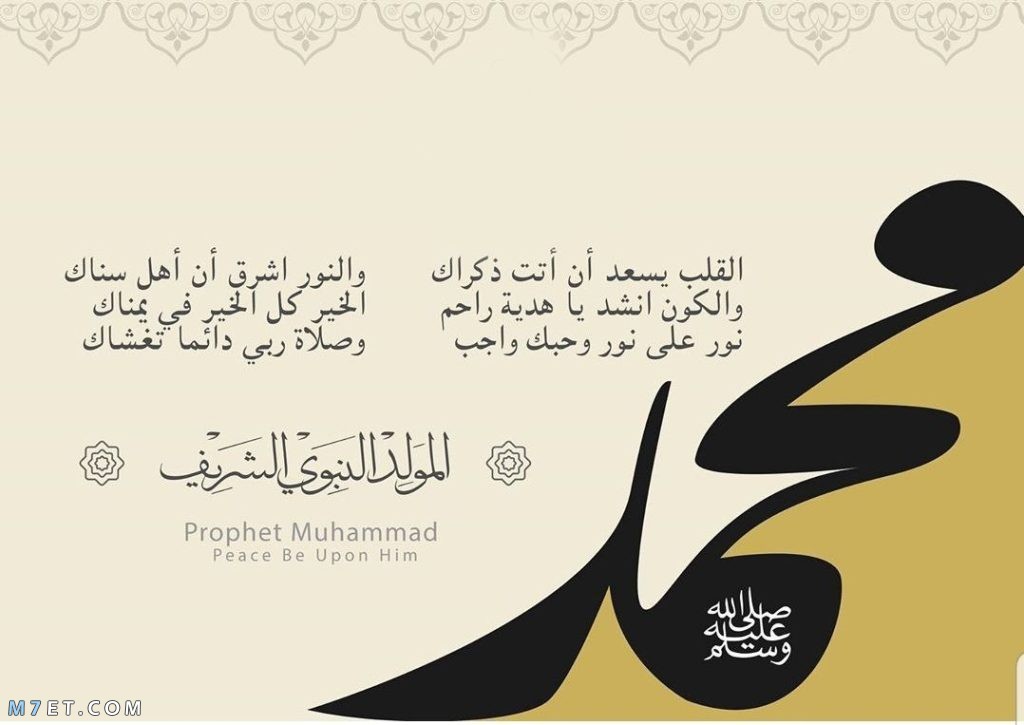 القلب يسعد أن أتت ذكراك والنور اشرق أن أهل سناك
والكون انشد يا هدية راحم الخير كل الخير في يمناك
نور على نور وحبك واجب وصلاة ربي دائما تغشاك
المَولِد النبَوَي الشَرِيف
Prophet Muhammad
Peace Be Upon Him
محمد
صلى الله
عليه
وسلم
M7ET.COM